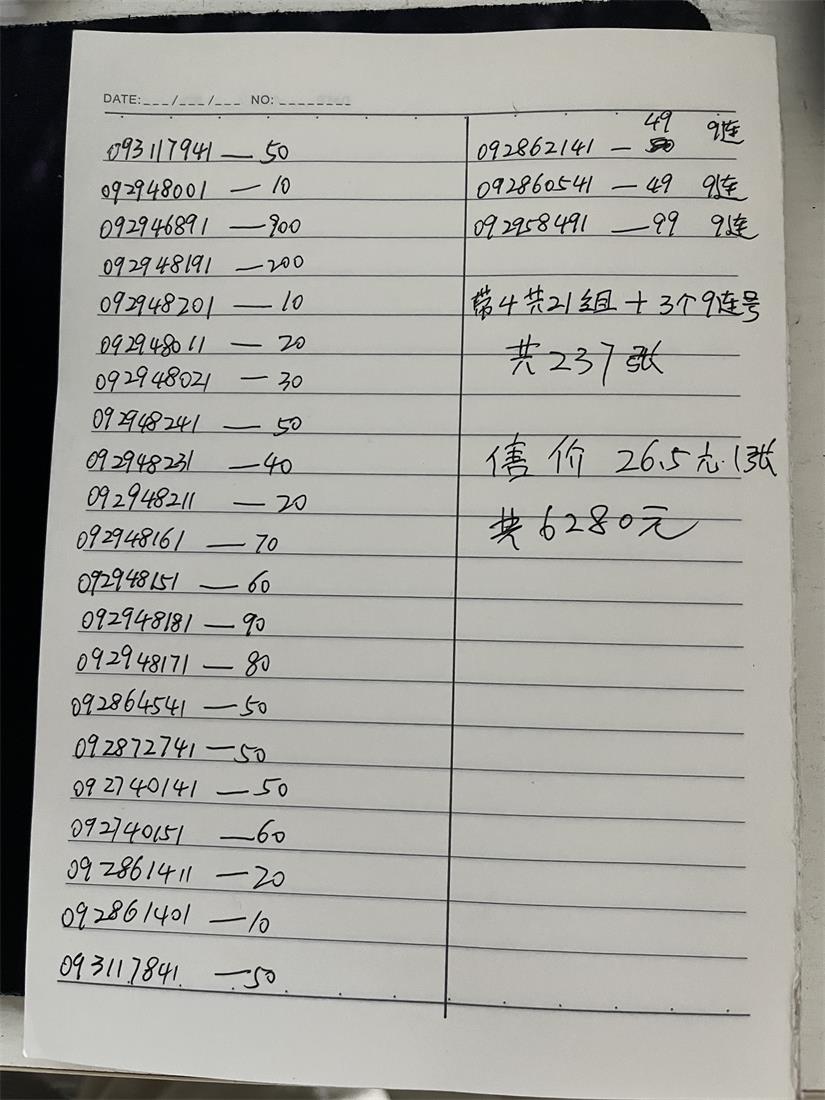 DATE:___/___/___ NO:________
093117941—50
092948001—10
092946891—900
092948191—200
092948201—10
092948011—20
092948021—30
092948241—50
092948231—40
092948211—20
092948161—70
092948151—60
092948181—90
092948171—80
092864541—50
092872741—50
092740141—50
092740151—60
092861411—20
092861401—10
093117841—50
092862141—49 9连
092860541—49 9连
092958491—99 9连
带4共21组+3个9连号
共237张
售价 26.5元/张
共6280元